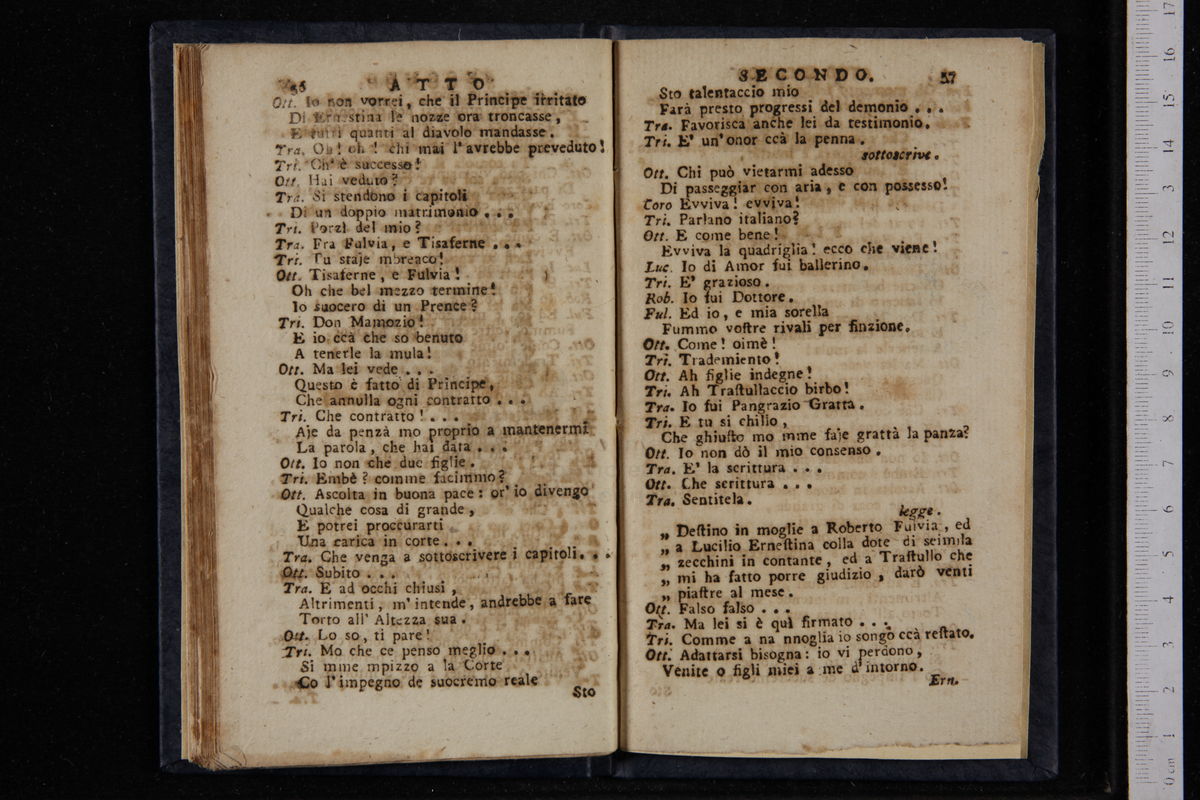 56 ATTO
Ott. Io non vorrei, che il Principe irritato
Di Ernestina le nozze ora troncasse,
E tutti quanti al diavolo mandasse.
Tra. Oh! oh! chi mai l'avrebbe preveduto!
Tri. Ch'è successo!
Ott. Hai veduto?
Tra. Si stendono i capitoli
Di un doppio matrimonio...
Tri. Porzì del mio?
Tra. Fra Fulvia, e Tisaferne...
Tri. Tu staje mbreaco!
Ott. Tisaferne, e Fulvia!
Oh che bel mezzo termine!
Io suocero di un Prence?
Tri. Don Mamozio!
E io ccà che so benuto
A tenerle la mula!
Ott. Ma lei vede...
Questo è fatto di Principe,
Che annulla ogni contratto...
Tri. Che contratto!...
Aje da penzà mo proprio a mantenermi
La parola, che hai data...
Ott. Io non che due figlie.
Tri. Embè? comme facimmo?
Ott. Ascolta in buona pace: or'io divengo
Qualche cosa di grande,
E potrei proccurarti
Una carica in corte...
Tra. Che venga a sottoscrivere i capitoli...
Ott. Subito...
Tra. E ad occhi chiusi,
Altrimenti, m'intende, andrebbe a fare
Torto all'Altezza sua.
Ott. Lo so, ti pare!
Tri. Mo che ce penso meglio...
Si mme mpizzo a la Corte
Co l'impegno de suocremo reale
Sto
SECONDO. 57
Sto talentaccio mio
Farà presto progressi del demonio...
Tra. Favorisca anche lei da testimonio.
Tri. E' un'onor ccà la penna.
sottoscrive.
Ott. Chi può vietarmi adesso
Di passeggiar con aria, e con possesso!
Coro Evviva! evviva!
Tri. Parlano italiano?
Ott. E come bene!
Evviva la quadriglia! ecco che viene!
Luc. Io di Amor fui ballerino.
Tri. E' grazioso.
Rob. Io fui Dottore.
Ful. Ed io, e mia sorella
Fummo vostre rivali per finzione.
Ott. Come! oimè!
Tri. Trademiento!
Ott. Ah figlie indegne!
Tri. Ah Trastullaccio birbo!
Tra. Io fui Pangrazio Gratta.
Tri. E tu si chillo,
Che ghiusto mo mme faje grattà la panza?
Ott. Io non dò il mio consenso.
Tra. E' la scrittura...
Ott. Che scrittura...
Tra. Sentitela.
legge.
„ Destino in moglie a Roberto Fulvia, ed
„ a Lucilio Ernestina colla dote di seimila
„ zecchini in contante, ed a Trastullo che
„ mi ha fatto porre giudizio, darò venti
„ piastre al mese.
Ott. Falso falso...
Tra. Ma lei si è quì firmato...
Tri. Comme a na nnoglia io songo ccà restato.
Ott. Adattarsi bisogna: io vi perdono,
Venite o figli miei a me d'intorno.
Ern.
0 cm 1 2 3 4 5 6 7 8 9 10 11 12 13 14 15 16 17